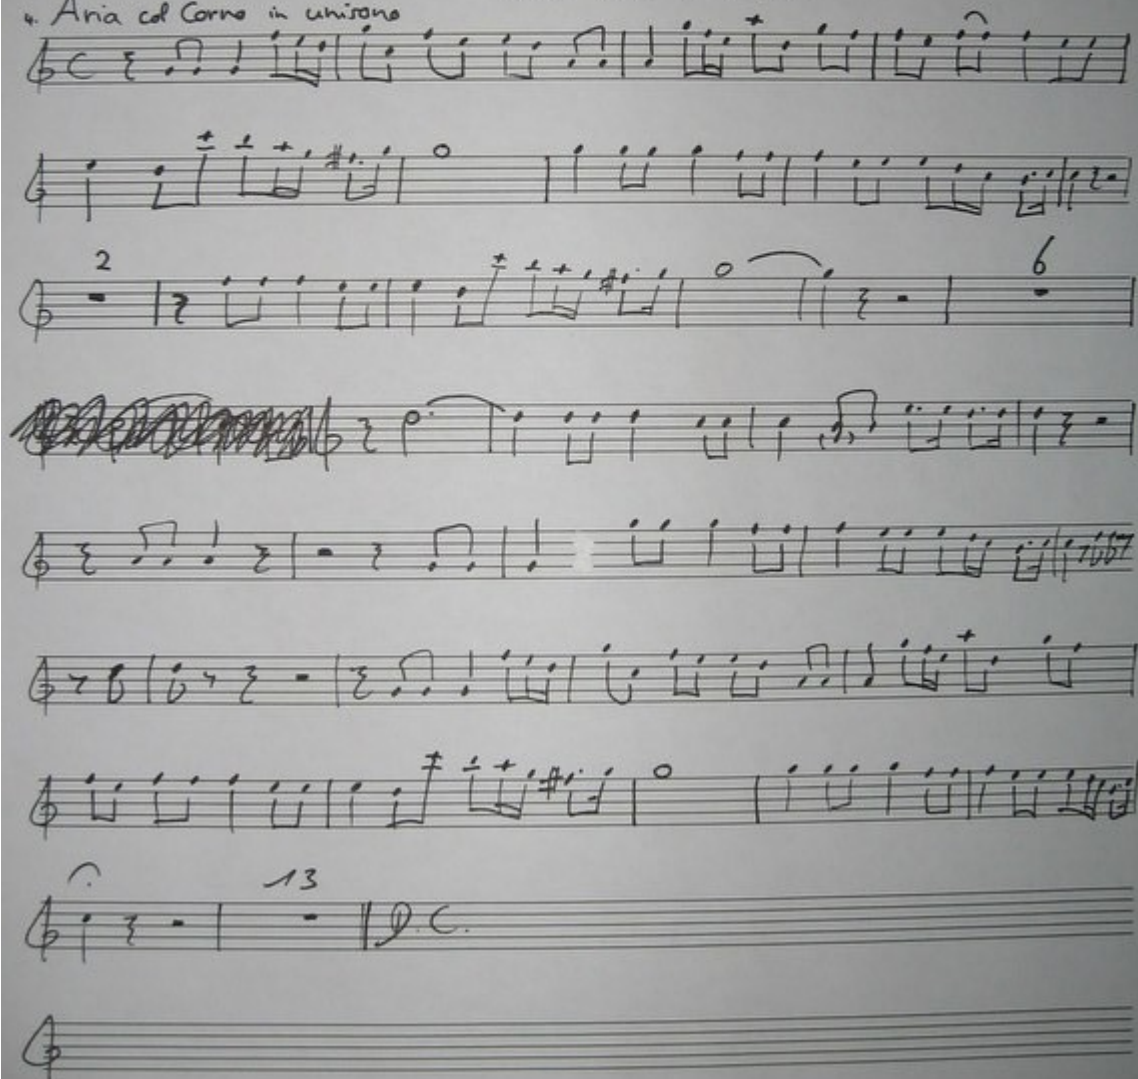 4. Aria col Corno in unisono
2
6
13
D.C.